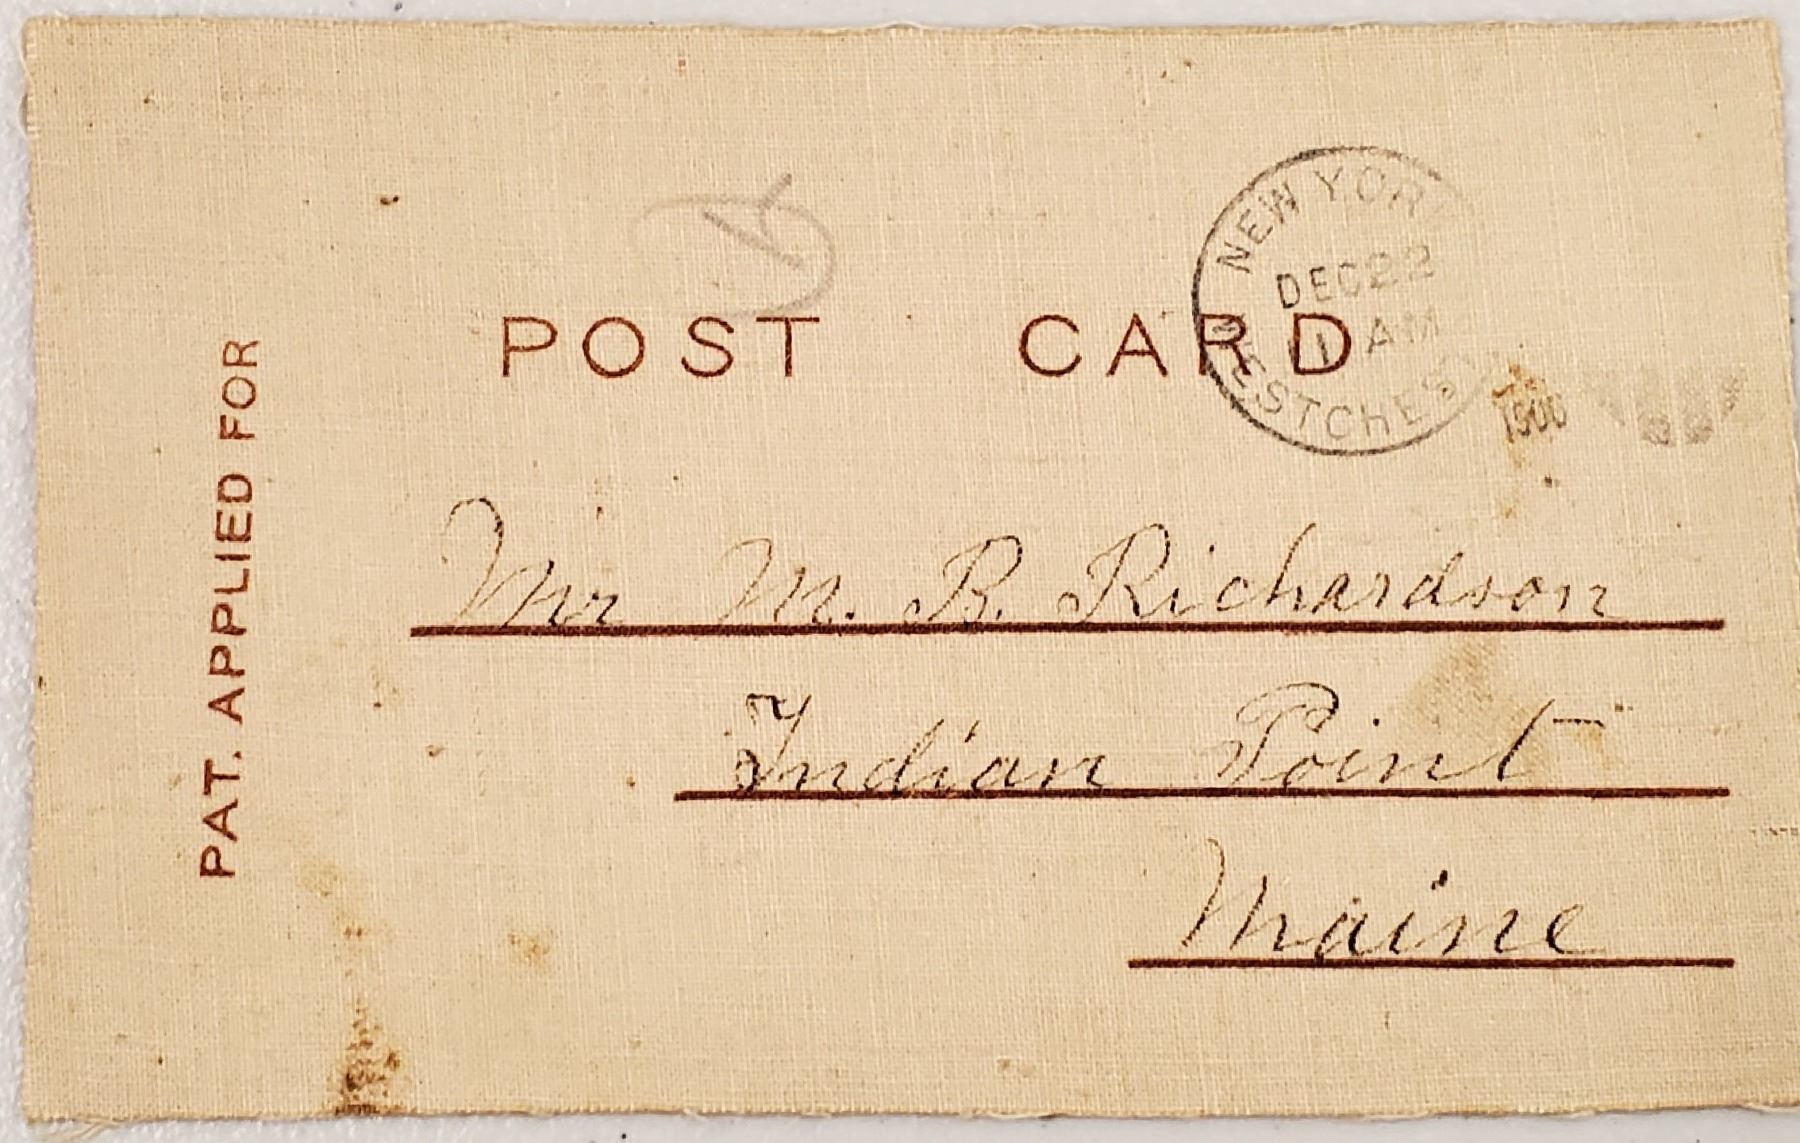 NEW YORK
DEC 22
11 AM
WESTCHES
1906
POST CARD
PAT. APPLIED FOR
Mr M. B. Richardson
Indian Point
Maine